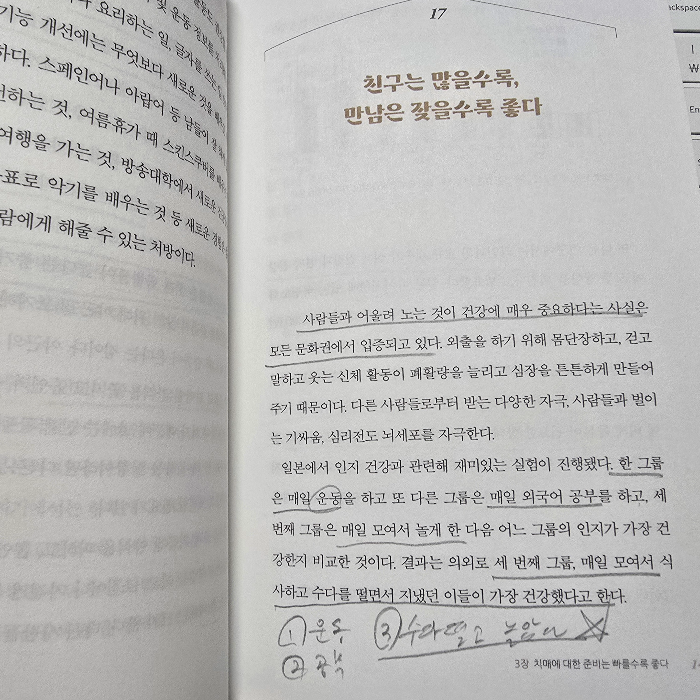 요리하는 일, 글자를 쓰는
기능 개선에는 무엇보다 새로운 것을
하다. 스페인어나 아랍어 등 남들이 잘
하는 것, 여름휴가 때 스킨스쿠버를
여행을 가는 것, 방송대학에서 새로운
표로 악기를 배우는 것 등 새로운
람에게 해줄 수 있는 처방이다.
17
친구는 많을수록,
만남은 잦을수록 좋다
사람들과 어울려 노는 것이 건강에 매우 중요하다는 사실은
모든 문화권에서 입증되고 있다. 외출을 하기 위해 몸단장하고, 걷고
말하고 웃는 신체 활동이 폐활량을 늘리고 심장을 튼튼하게 만들어
주기 때문이다. 다른 사람들로부터 받는 다양한 자극, 사람들과 벌이
는 기싸움, 심리전도 뇌세포를 자극한다.
일본에서 인지 건강과 관련해 재미있는 실험이 진행됐다. 한 그룹
은 매일 운동을 하고 또 다른 그룹은 매일 외국어 공부를 하고, 세
번째 그룹은 매일 모여서 놀게 한 다음 어느 그룹의 인지가 가장 건
강한지 비교한 것이다. 결과는 의외로 세 번째 그룹, 매일 모여서 식
사하고 수다를 떨면서 지냈던 이들이 가장 건강했다고 한다.
① 운동 ③ 수다떨고
② 공부
3장 치매에 대한 준비는 빠를수록 좋다